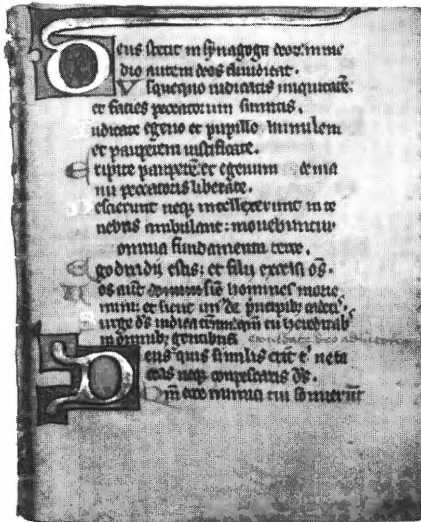 Deus stetit in synagoga deor: in me
dio autem deos diiudicat.
Usquequo iudicatis iniquitatē:
et facies peccatorum sumitis.
Iudicate egeno et pupillo humilem
et pauperem iustificate.
Eripite pauperē et egenum de ma
nu peccatoris liberate.
Nescierunt neq; intellexerunt in te
nebris ambulant: mouebuntur
omnia fundamenta terre.
Ego dixi dii estis: et filii excelsi om̄s.
Vos aut̄ sic̄ homines morie
mini: et sicut un' de p̄ncipib; cadetis.
Surge ds̄ iudica terram: qm̄ tu hereditab
in omnib; gentibus
Deus quis similis erit t' ne ta
ceas neq; compescaris ds̄.
Qm̄ ecce inimici tui sonuerūt